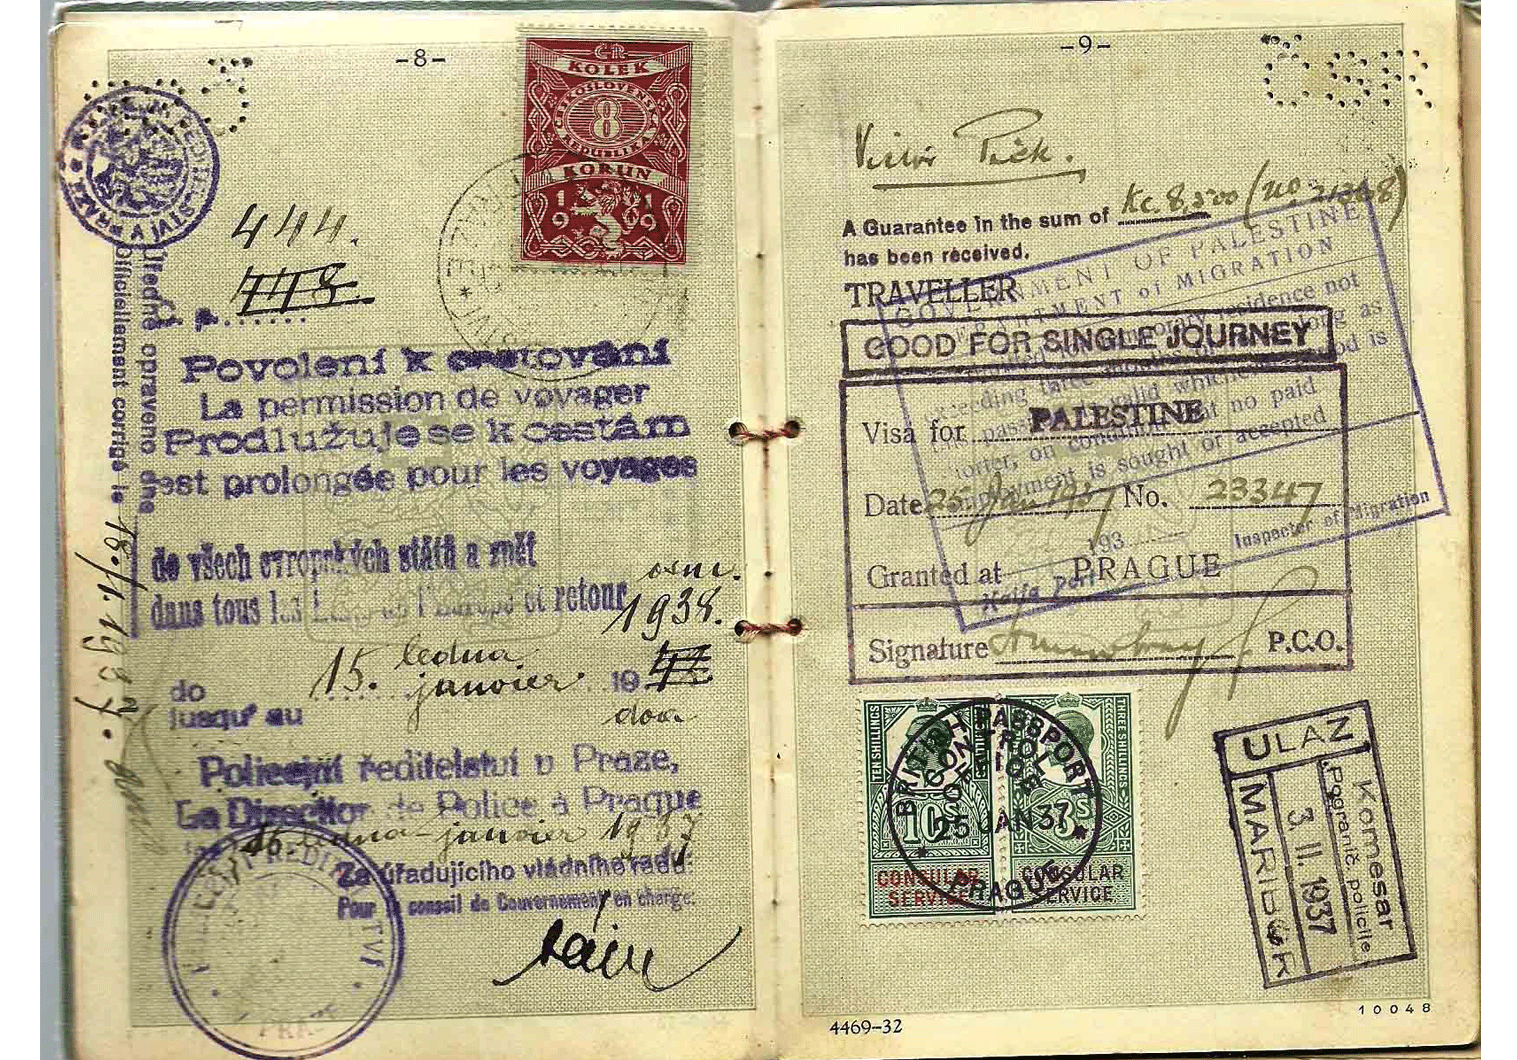 -8-
ČR
KOLEK
ČESKOSLOVENSKÁ
8
REPUBLIKA
KORUN
1919
444.
448.
Úředně opraveno dne
Officiellement corrigé le
18./1.1937.
Povolení k cestování
La permission de voyager
Prodlužuje se k cestám
est prolongée pour les voyages
de všech evropských států a zpět
dans tous les Etats de l'Europe et retour
osm.
1938.
do 15. ledna 19
jusqu' au janvier
dva
Policejní ředitelství v Praze,
La Director de Police à Prague
16. ledna-janvier 1937
Za úřadujícího vládního radu:
Pour le conseil de Gouvernement en charge:
-9-
ČSR
Victor Pick.
A Guarantee in the sum of Kc 8,500 (no 21348)
has been received.
TRAVELLER
GOOD FOR SINGLE JOURNEY
Visa for PALESTINE
Date 25 Jan 1937 No. 23347
Granted at PRAGUE
Signature P.C.O.
GOVERNMENT OF PALESTINE
DEPARTMENT of MIGRATION
residence not
exceeding three
as
is
passport is valid whichever
no paid
shorter, on condition that
employment is sought or accepted
193
Inspector of Migration
Haifa Port
TEN SHILLINGS
THREE SHILLINGS
10
3S
CONSULAR
SERVICE
CONSULAR
SERVICE
BRITISH PASSPORT
CONTROL
25 JAN 37
PRAGUE
ULAZ
MARIBOR
3 II 1937
Komesar
Pogranič. policije
4469-32
10048